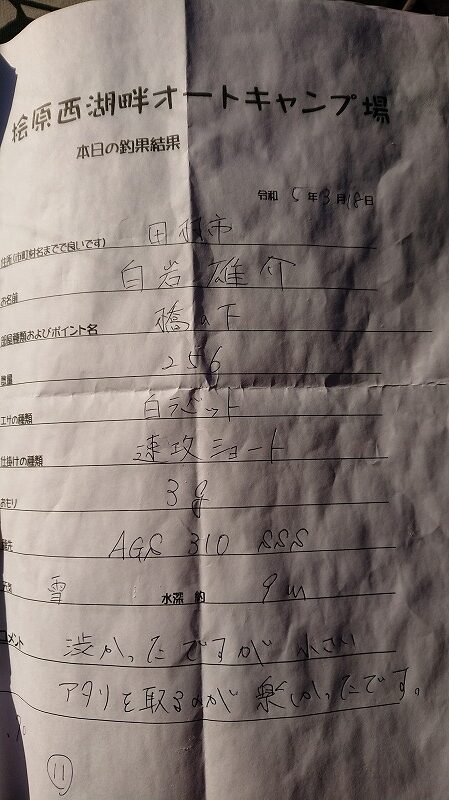 桧原西湖畔オートキャンプ場
本日の釣果結果
令和 5年3月18日
住所(市町村名までで良いです) 田村市
お名前 白岩雄介
部屋種類およびポイント名 橋の下
数量 256
エサの種類 白ラビット
仕掛けの種類 速攻ショート
おもり 3g
穂先 AGS 310 SSS
天気 雪 水深 約 9m
コメント 渋かったですが小さい
アタリを取るのが楽しかったです。
11